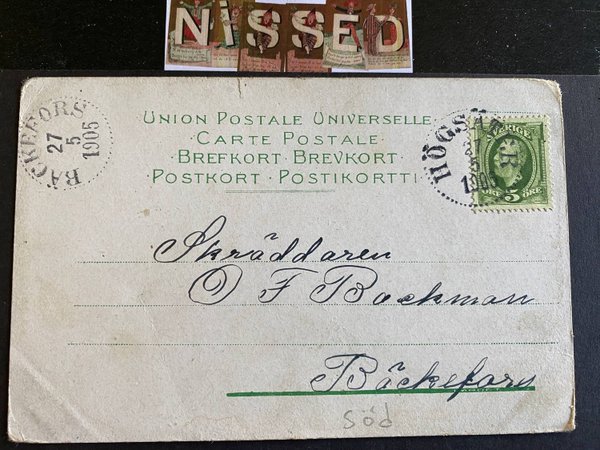 NiSSED
BÄCKEFORS
27
5
1905
UNION POSTALE UNIVERSELLE
CARTE POSTALE
BREFKORT · BREVKORT
POSTKORT · POSTIKORTTI
HÖGSÄTER
27
5
1905
SVERIGE
5 ÖRE
Skräddaren
O F Backman
Bäckefors
söd